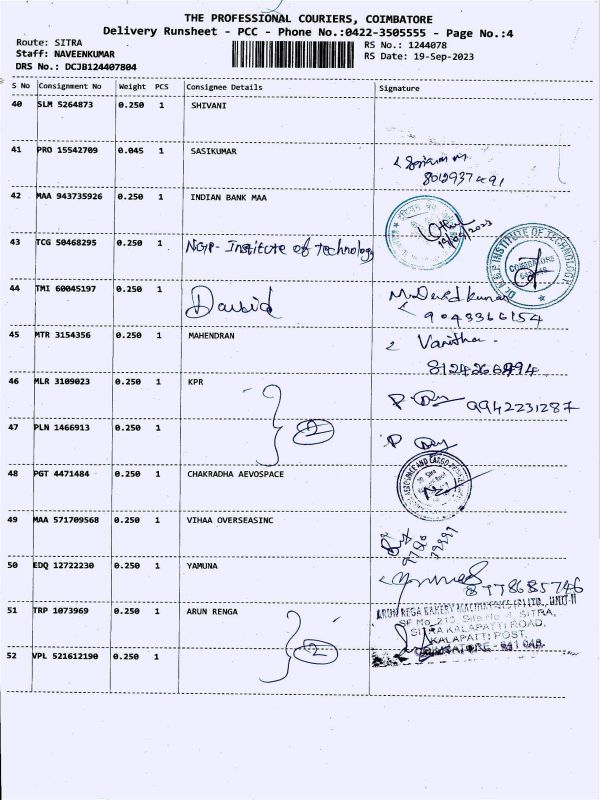 THE PROFESSIONAL COURIERS, COIMBATORE
Delivery Runsheet - PCC - Phone No.:0422-3505555 - Page No.:4
Route: SITRA
Staff: NAVEENKUMAR
DRS No.: DCJB124407804
RS No.: 1244078
RS Date: 19-Sep-2023
S No Consignment No Weight PCS Consignee Details Signature
40 SLM 5264873 0.250 1 SHIVANI
41 PRO 15542709 0.045 1 SASIKUMAR
8012937491
42 MAA 943735926 0.250 1 INDIAN BANK MAA
43 TCG 50468295 0.250 1 NGP- Institute of Technology
INSTITUTE OF TECHNOLOGY
COIMBATORE
44 TMI 60045197 0.250 1 David M. David kumar
9043366154
45 MTR 3154356 0.250 1 MAHENDRAN Vanitha.
8124266994
46 MLR 3109023 0.250 1 KPR P Dey 9942231287
47 PLN 1466913 0.250 1 2 P Dey
48 PGT 4471484 0.250 1 CHAKRADHA AEVOSPACE
AEROSPACE AND CARGO
49 MAA 571709568 0.250 1 VIHAA OVERSEASINC
50 EDQ 12722230 0.250 1 YAMUNA
8778685746
51 TRP 1073969 0.250 1 ARUN RENGA
SF No 213, Site No 4, SITRA,
SITRA KALAPATTI ROAD,
KALAPATTI POST,
COIMBATORE - 641 048.
52 VPL 521612190 0.250 1 2